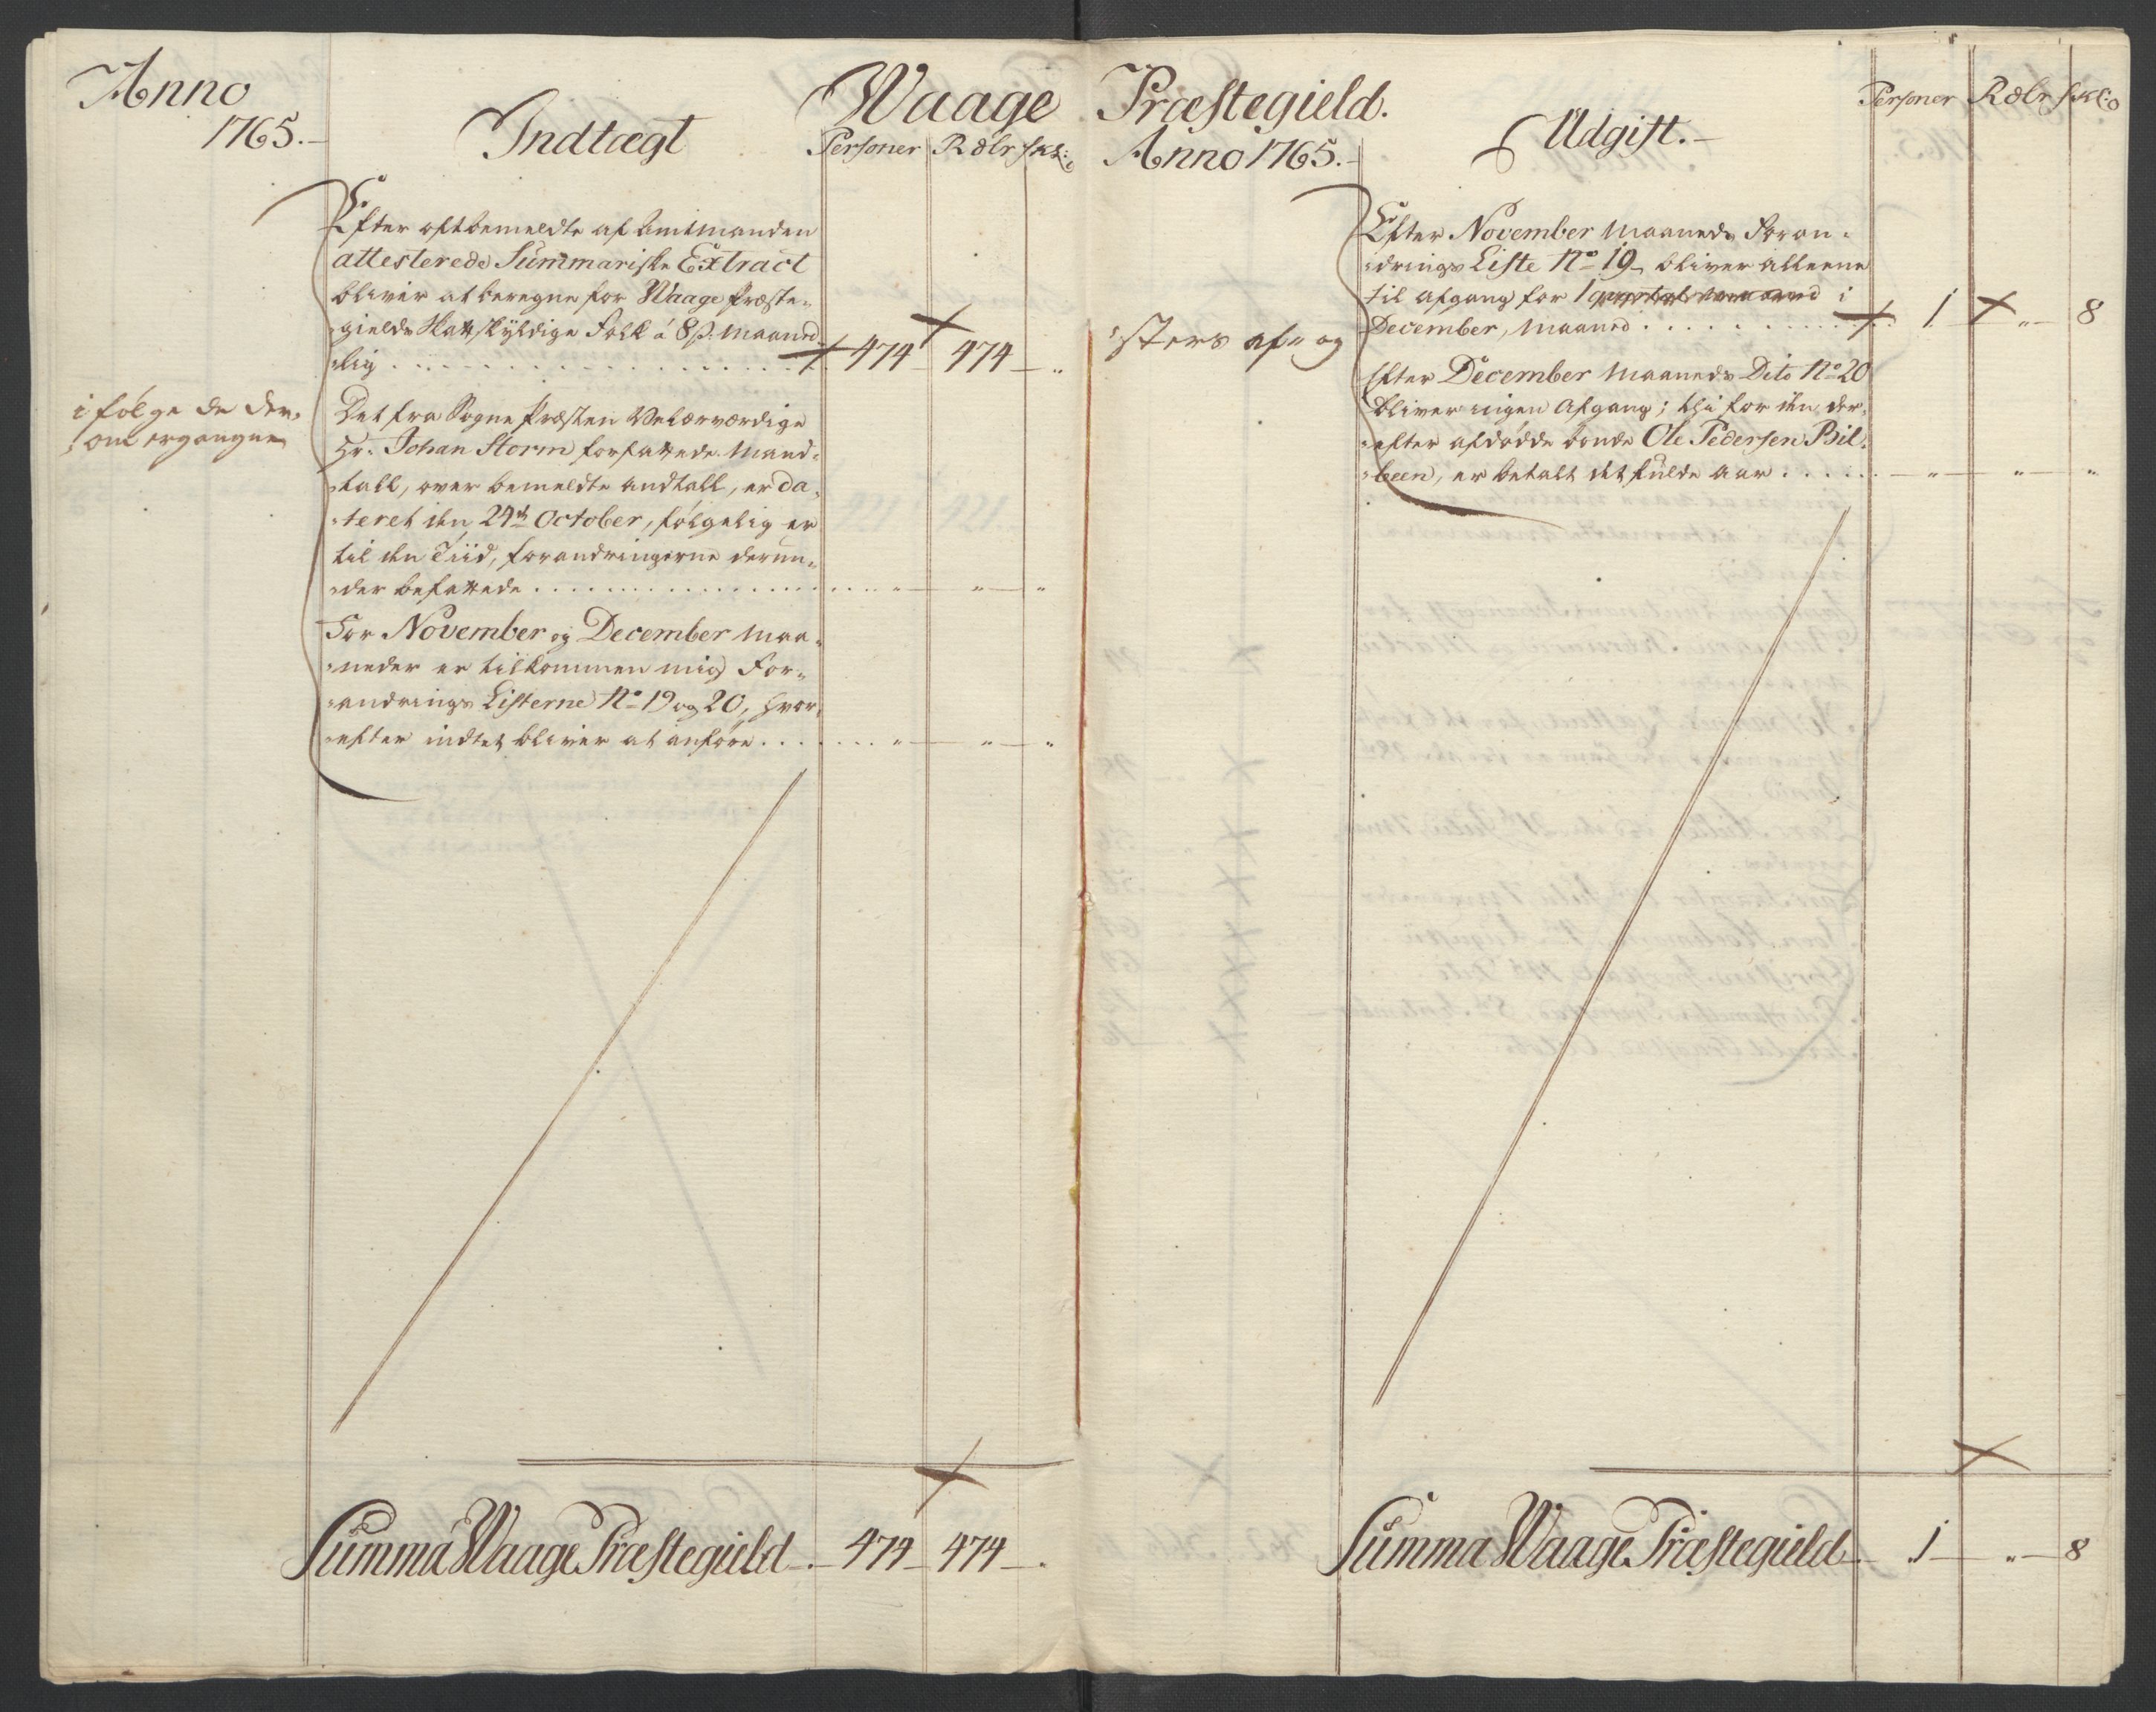 Anno
1765.
Indtægt
Waage
Personer Rdlr skl:
Efter oftbemeldte af Amtmanden
attesterede Summariske Extract
bliver at beregne for Waage Præste-
gields Skattskyldige Folk á 8 s. maaned-
lig . . . . 474 474
i følge de der-
om ergangne
Det fra Sogne Præsten Velærværdige
Hr. Johan Storm forfattede Mand-
tall, over bemeldte andtall, er da-
teret den 24de October, følgelig er
til den Tiid, forandringerne derun-
der befattede . . . . " " "
For November og December Maa-
neder er tilkommen mig For-
andrings Listerne No 19 og 20, hvor-
efter indtet bliver at anføre . . . . " " "
Summa Waage Præstegield 474 474
Præstegield.
Anno 1765.
Udgift.
Personer Rdlr skl:
Efter November Maaneds Foran-
drings Liste No 19 bliver alleene
til afgang for 1 i
December, maaned . . . . 1 " 8
Efter December Maaneds Dito No 20
bliver ingen Afgang; thi for den, der-
efter afdødde bonde Ole Pedersen Bil-
been, er betalt det fulde aar . . . . " " "
Summa Waage Præstegield 1 " 8